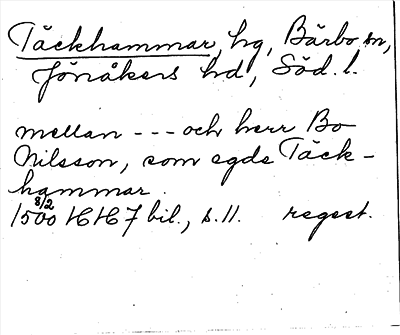 Täckhammar, hg, Bärbo sn,
Jönåkers hd, Söd. l.
mellan --- och herr Bo
Nilsson, som egde Täck-
hammar.
1500 8/2 HH 7 bil., s. 11. regest.